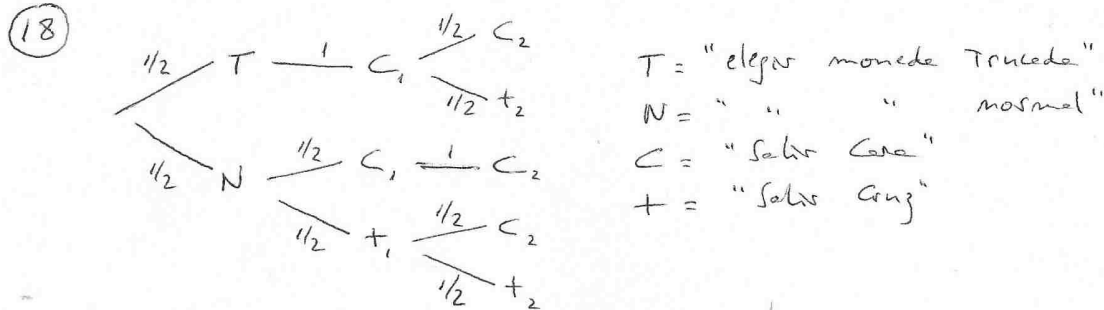 18
1/2 T 1 C₁ 1/2 C₂
1/2 t₂
1/2 N 1/2 C₁ 1 C₂
1/2 t₁ 1/2 C₂
1/2 t₂
T = "elegir moneda Trucada"
N = " " " normal"
C = "Salir Cara"
+ = "Salir Cruz"